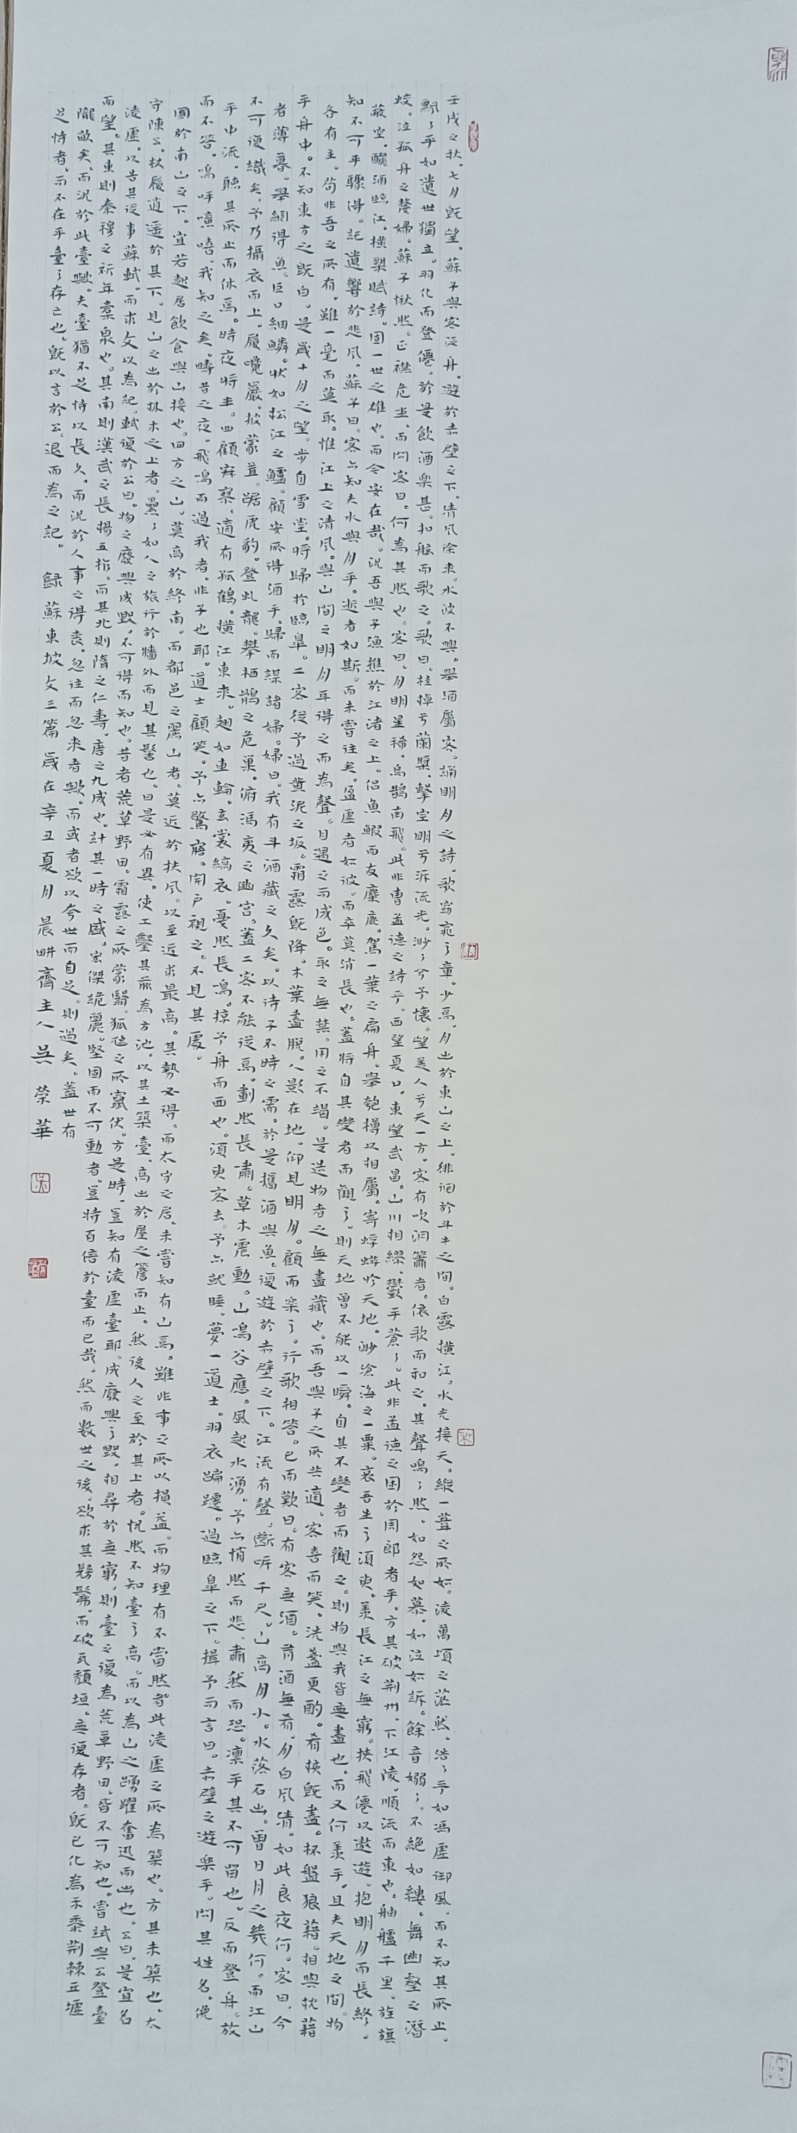 壬戌之秋。七月既望。蘇子與客泛舟。遊於赤壁之下。清風徐來。水波不興。舉酒屬客。誦明月之詩。歌窈窕之章。少焉。月出於東山之上。徘徊於斗牛之間。白露橫江。水光接天。縱一葦之所如。淩萬頃之茫然。浩浩乎如馮虛御風。而不知其所止。
飄飄乎如遺世獨立。羽化而登僊。於是飲酒樂甚。扣舷而歌之。歌曰。桂棹兮蘭槳。擊空明兮泝流光。渺渺兮予懷。望美人兮天一方。客有吹洞簫者。依歌而和之。其聲嗚嗚然。如怨如慕。如泣如訴。餘音嫋嫋。不絕如縷。舞幽壑之潛
蛟。泣孤舟之嫠婦。蘇子愀然。正襟危坐。而問客曰。何為其然也。客曰。月明星稀。烏鵲南飛。此非曹孟德之詩乎。西望夏口。東望武昌。山川相繆。鬱乎蒼蒼。此非孟德之困於周郎者乎。方其破荊州。下江陵。順流而東也。舳艫千里。旌旗
蔽空。釃酒臨江。橫槊賦詩。固一世之雄也。而今安在哉。況吾與子漁樵於江渚之上。侶魚蝦而友麋鹿。駕一葉之扁舟。舉匏樽以相屬。寄蜉蝣於天地。渺滄海之一粟。哀吾生之須臾。羨長江之無窮。挾飛僊以遨遊。抱明月而長終。
知不可乎驟得。託遺響於悲風。蘇子曰。客亦知夫水與月乎。逝者如斯。而未嘗往矣。盈虛者如彼。而卒莫消長也。蓋將自其變者而觀之。則天地曾不能以一瞬。自其不變者而觀之。則物與我皆無盡也。而又何羨乎。且夫天地之間。物
各有主。苟非吾之所有。雖一毫而莫取。惟江上之清風。與山間之明月。耳得之而為聲。目遇之而成色。取之無禁。用之不竭。是造物者之無盡藏也。而吾與子之所共適。客喜而笑。洗盞更酌。肴核既盡。杯盤狼藉。相與枕藉
乎舟中。不知東方之既白。是歲十月之望。步自雪堂。將歸於臨皋。二客從予過黃泥之坂。霜露既降。木葉盡脫。人影在地。仰見明月。顧而樂之。行歌相答。已而歎曰。有客無酒。有酒無肴。月白風清。如此良夜何。客曰。今
者薄暮。舉網得魚。巨口細鱗。狀如松江之鱸。顧安所得酒乎。歸而謀諸婦。婦曰。我有斗酒。藏之久矣。以待子不時之需。於是攜酒與魚。復遊於赤壁之下。江流有聲。斷岸千尺。山高月小。水落石出。曾日月之幾何。而江山
不可復識矣。予乃攝衣而上。履巉巖。披蒙茸。踞虎豹。登虬龍。攀栖鶻之危巢。俯馮夷之幽宮。蓋二客不能從焉。劃然長嘯。草木震動。山鳴谷應。風起水湧。予亦悄然而悲。肅然而恐。凜乎其不可留也。反而登舟。放
乎中流。聽其所止而休焉。時夜將半。四顧寂寥。適有孤鶴。橫江東來。翅如車輪。玄裳縞衣。戛然長鳴。掠予舟而西也。須臾客去。予亦就睡。夢一道士。羽衣蹁躚。過臨皋之下。揖予而言曰。赤壁之遊樂乎。問其姓名。俛
而不答。嗚呼噫嘻。我知之矣。疇昔之夜。飛鳴而過我者。非子也耶。道士顧笑。予亦驚寤。開戶視之。不見其處。
國於南山之下。宜若起居飲食與山接也。四方之山。莫高於終南。而都邑之麗山者。莫近於扶風。以至近求最高。其勢必得。而太守之居。未嘗知有山焉。雖非事之所以損益。而物理有不當然者。此淩虛之所為築也。方其未築也。太
守陳公。杖履逍遙於其下。見山之出於林木之上者。纍纍如人之旅行於牆外而見其髻也。曰。是必有異。使工鑿其前為方池。以其土築臺。高出於屋之簷而止。然後人之至於其上者。怳然不知臺之高。而以為山之踴躍奮迅而出也。公曰。是宜名
淩虛。以告其從事蘇軾。而求文以為記。軾復於公曰。物之廢興成毀。不可得而知也。昔者荒草野田。霜露之所蒙翳。狐虺之所竄伏。方是時。豈知有淩虛臺耶。成廢興之毀。相尋於無窮。則臺之復為荒草野田。皆不可知也。嘗試與公登臺
而望。其東則秦穆之祈年橐泉也。其南則漢武之長楊五柞。而其北則隋之仁壽。唐之九成也。計其一時之盛。宏傑詭麗。堅固而不可動者。豈特百倍於臺而已哉。然而數世之後。欲求其髣髴。而破瓦頹垣。無復存者。既已化為禾黍荊棘丘墟
隴畝矣。而況於此臺歟。夫臺猶不足恃以長久。而況於人事之得喪。忽往而忽來者歟。而或者欲以夸世而自足。則過矣。蓋世有
足恃者。而不在乎臺之存亡也。既以言於公。退而為之記。 録蘇東坡文三篇 歲在辛丑夏月 晨畊齋主人 吳榮華